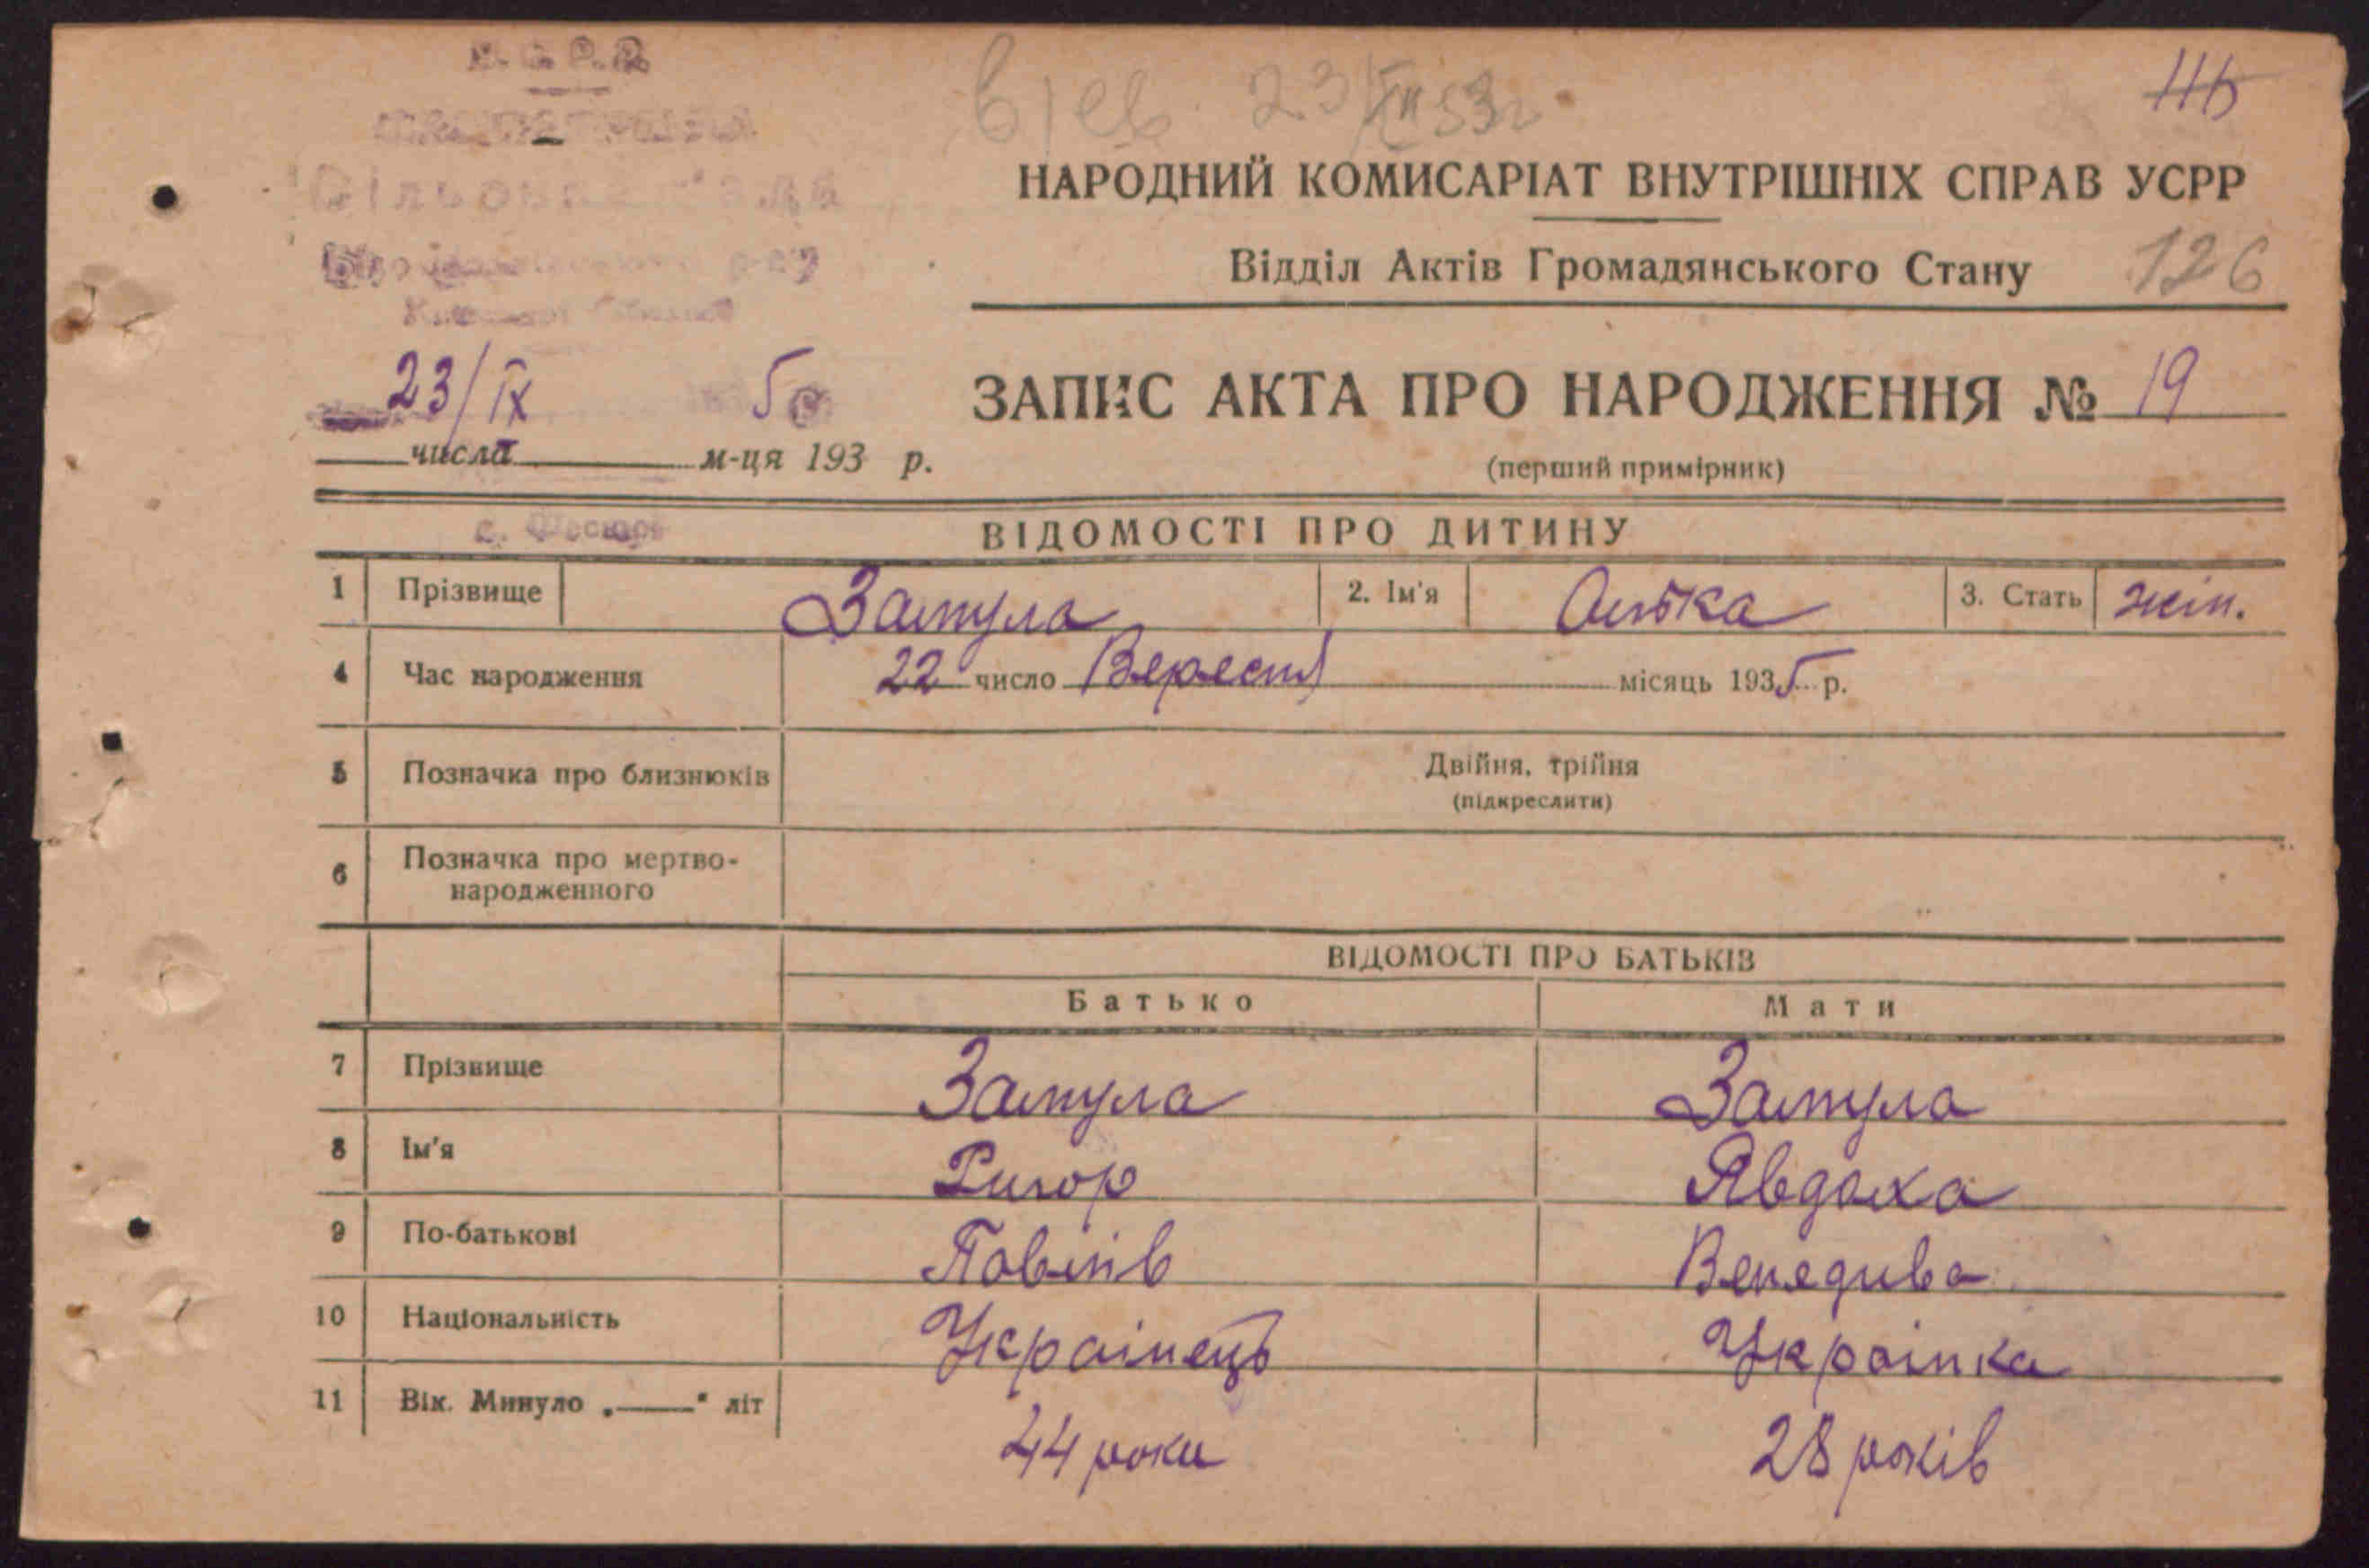 У. С. Р. Р.
Сільська Рада
23/ІХ 5
числа м-ця 193 р.
с. Фесюри
23/ХІІ 53 г
116
НАРОДНИЙ КОМИСАРІАТ ВНУТРІШНІХ СПРАВ УСРР
Відділ Актів Громадянського Стану 126
ЗАПИС АКТА ПРО НАРОДЖЕННЯ № 19
(перший примірник)
ВІДОМОСТІ ПРО ДИТИНУ
1 Прізвище Затула 2. Ім'я Олька 3. Стать жін.
4 Час народження 22 число Вересня місяць 1935 р.
5 Позначка про близнюків Двійня, трійня
(підкреслити)
6 Позначка про мертво-
народженного
ВІДОМОСТІ ПРО БАТЬКІВ
Батько Мати
7 Прізвище Затула Затула
8 Ім'я Григор Явдоха
9 По-батькові Павлів Венедива
10 Національність Українець Українка
11 Вік. Минуло „——" літ 44 роки 28 років